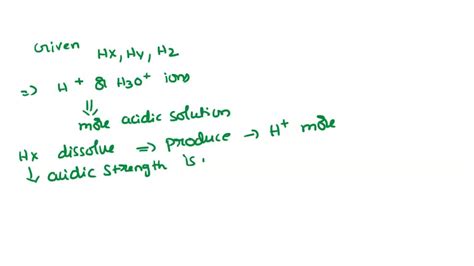 Given Hx, Hy, Hz
=> H+ & H3O+ ions
more acidic solution
Hx dissolve => produce → H+ more
↓ acidic strength is